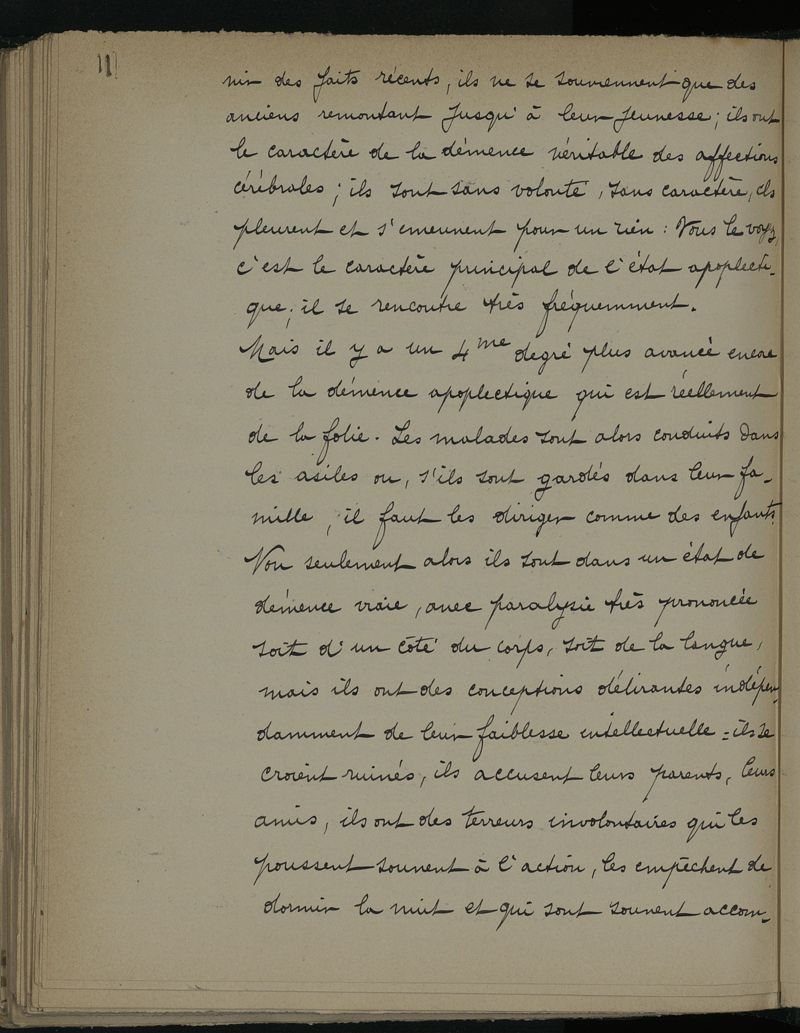 111
nir des faits récents, ils ne se souviennent que des
anciens remontant jusqu'à leur jeunesse; ils ont
le caractère de la démence véritable des affections
cérébrales; ils sont sans volonté, sans caractère, ils
pleurent et s'émeuvent pour un rien: Vous le voyez,
c'est le caractère principal de l'état apoplecti-
que; il se rencontre très fréquemment.
Mais il y a un 4me degré plus avancé encore
de la démence apoplectique qui est réellement
de la folie. Les malades sont alors conduits dans
les asiles ou, s'ils sont gardés dans leur fa-
mille, il faut les diriger comme des enfants.
Non seulement alors ils sont dans un état de
démence vraie, avec paralysie très prononcée
soit d'un côté du corps, soit de la langue,
mais ils ont des conceptions délirantes indépen-
damment de leur faiblesse intellectuelle = ils se
croient ruinés, ils accusent leurs parents, leurs
amis, ils ont des terreurs involontaires qui les
poussent souvent à l'action, les empêchent de
dormir la nuit et qui sont souvent accom-